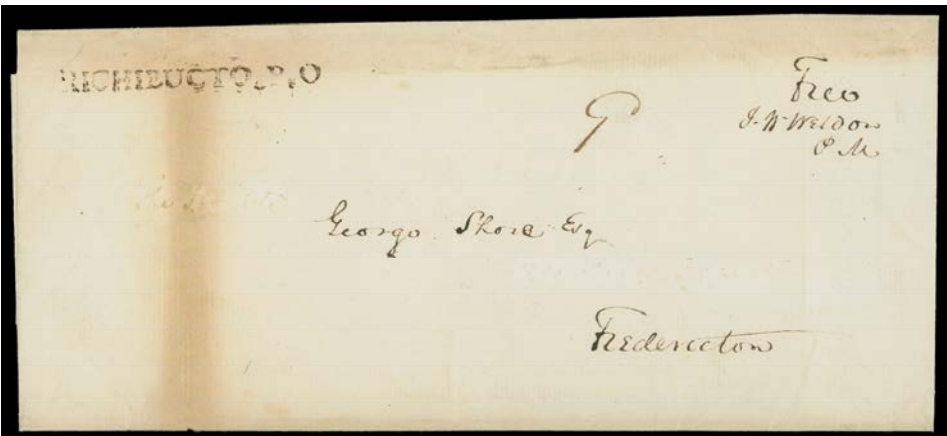 RICHIBUCTO. P. O
Free
J. W. Weldon
P. M.
9
George Shore Esq
Fredericton